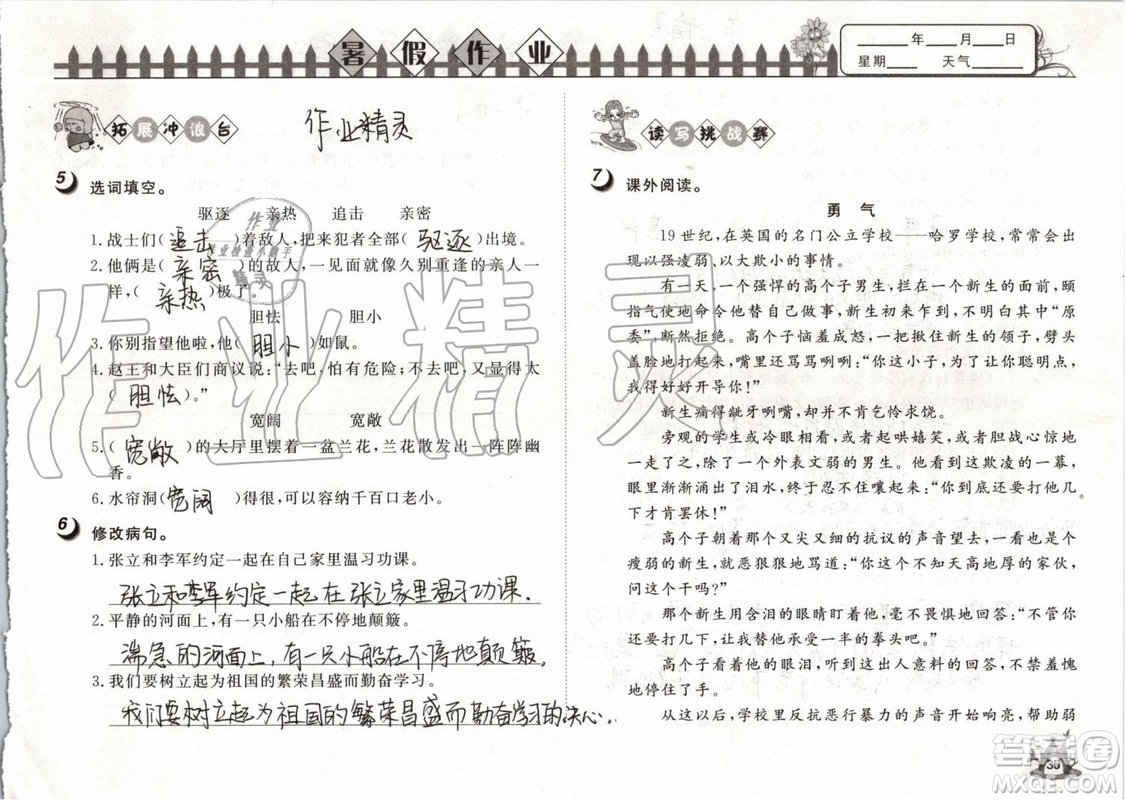 暑假作业
____年____月____日
星期____ 天气____
拓展冲浪台
作业精灵
5 选词填空。
驱逐 亲热 追击 亲密
1.战士们(追击)着敌人,把来犯者全部(驱逐)出境。
2.他俩是(亲密)的故人,一见面就像久别重逢的亲人一
样,(亲热)极了。
胆怯 胆小
3.你别指望他啦,他(胆小)如鼠。
4.赵王和大臣们商议说:“去吧,怕有危险;不去吧,又显得太
(胆怯)。”
宽阔 宽敞
5.(宽敞)的大厅里摆着一盆兰花,兰花散发出一阵阵幽
香。
6.水帘洞(宽阔)得很,可以容纳千百口老小。
6 修改病句。
1.张立和李军约定一起在自己家里温习功课。
张立和李军约定一起在张立家里温习功课.
2.平静的河面上,有一只小船在不停地颠簸。
湍急的河面上,有一只小船在不停地颠簸.
3.我们要树立起为祖国的繁荣昌盛而勤奋学习。
我们要树立起为祖国的繁荣昌盛而勤奋学习的决心。
读写挑战赛
7 课外阅读。
勇气
19世纪,在英国的名门公立学校——哈罗学校,常常会
出现以强凌弱、以大欺小的事情。
有一天,一个强悍的高个子男生,拦在一个新生的面前,颐
指气使地命令他替自己做事,新生初来乍到,不明白其中“原
委”,断然拒绝。高个子恼羞成怒,一把揪住新生的领子,劈头
盖脸地打起来,嘴里还骂骂咧咧:“你这小子,为了让你聪明点,
我得好好开导你!”
新生痛得龇牙咧嘴,却并不肯乞怜求饶。
旁观的学生或冷眼相看,或者起哄嬉笑,或者胆战心惊地
一走了之,除了一个外表文弱的男生。他看到这欺凌的一幕,
眼里渐渐涌出了泪水,终于忍不住嚷起来:“你到底还要打他几
下才肯罢休!”
高个子朝着那个又尖又细的抗议的声音望去,一看也是个
瘦弱的新生,就恶狠狠地骂道:“你这个不知天高地厚的家伙,
问这个干吗?”
那个新生用含泪的眼睛盯着他,毫不畏惧地回答:“不管你
还要打几下,让我替他承受一半的拳头吧。”
高个子看着他的眼泪,听到这出人意料的回答,不禁羞愧
地停住了手。
从这以后,学校里反抗恶行暴力的声音开始响亮,帮助弱
35
作业精灵
答案卷
MXQE.COM